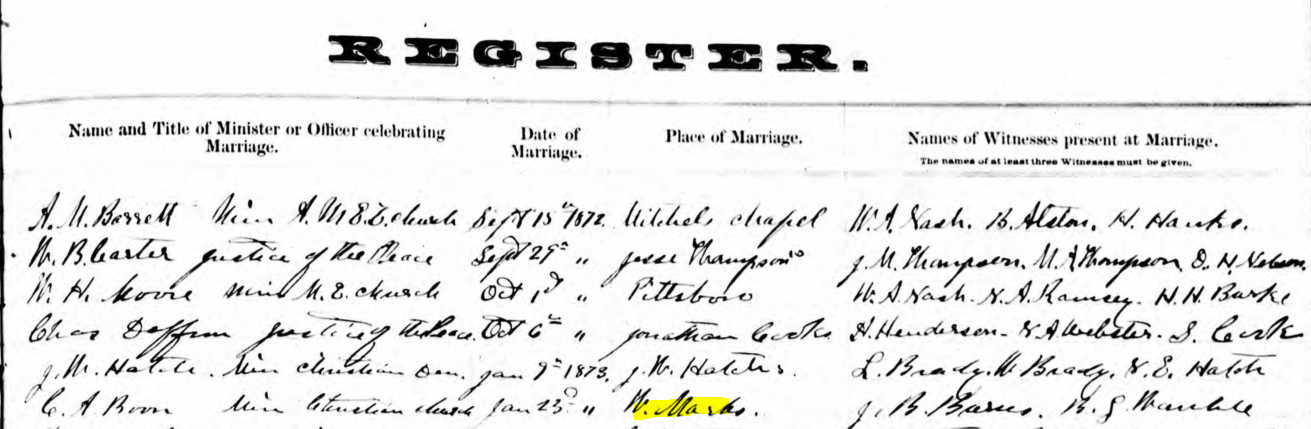 REGISTER.
Name and Title of Minister or Officer celebrating Marriage. Date of Marriage. Place of Marriage. Names of Witnesses present at Marriage.
The names of at least three Witnesses must be given.
A. M. Barrett Min A. M. E. Z. church Sept 15th 1872 Mitchels chapel W. A. Nash. B. Alston. H. Hanks.
W. B. Carter Justice of the Peace Sept 29th " Jesse Thompson's J. M. Thompson. M. A. Thompson. D. H. Nelson.
W. H. Moore Min M. E. church Oct 1st " Pittsboro W. A. Nash. N. A. Ramsey. H. H. Burke
Chas Justice of the Peace. Oct 6th " Jonathan Cooks H. Henderson. A Webster. S. Cook
J. W. Hatch. Min Christian Den. Jan 9th 1873. J. W. Hatch's. L. Brady. W Brady. E. Hatch
C. A. Boon Min Christian church Jan 23d " W. Marks. J. B. Barnes. B. G. Womble